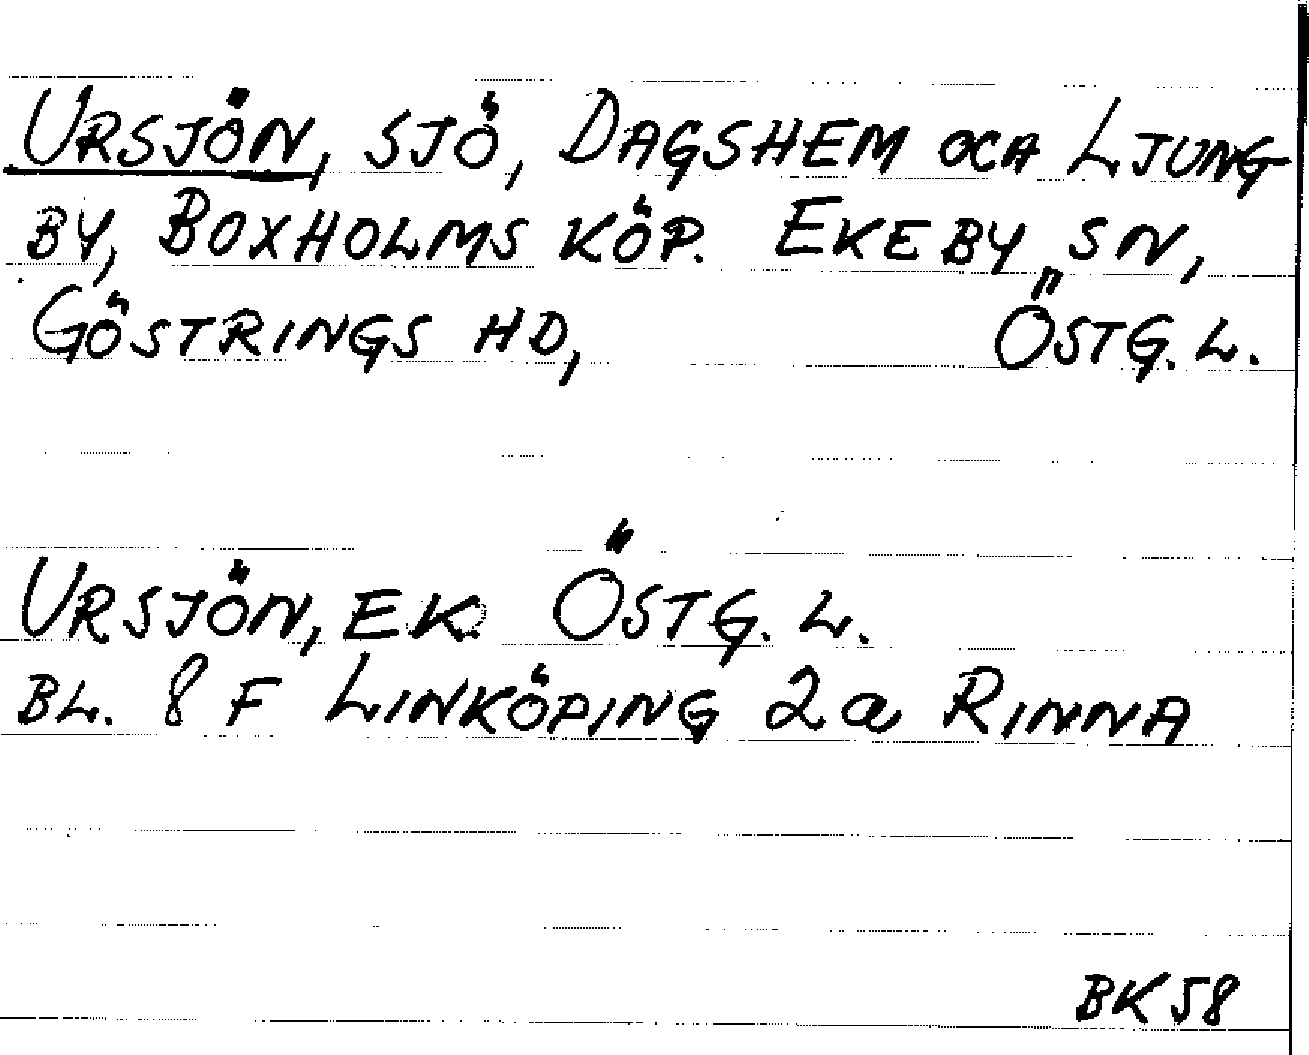 URSJÖN, SJÖ, DAGSHEM OCH LJUNG-
BY, BOXHOLMS KÖP. EKEBY SN,
GÖSTRINGS HD, ÖSTG. L.
URSJÖN, EK. ÖSTG. L.
BL. 8 F LINKÖPING 2a RINNA
BK 58